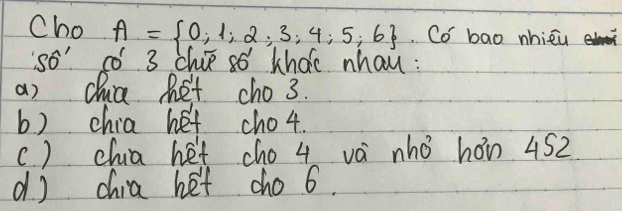 Cho A = {0; 1; 2; 3; 4; 5; 6}. Có bao nhiêu
số có 3 chữ số khác nhau:
a) chia hết cho 3.
b) chia hết cho 4.
c) chia hết cho 4 và nhỏ hơn 452
d) chia hết cho 6.